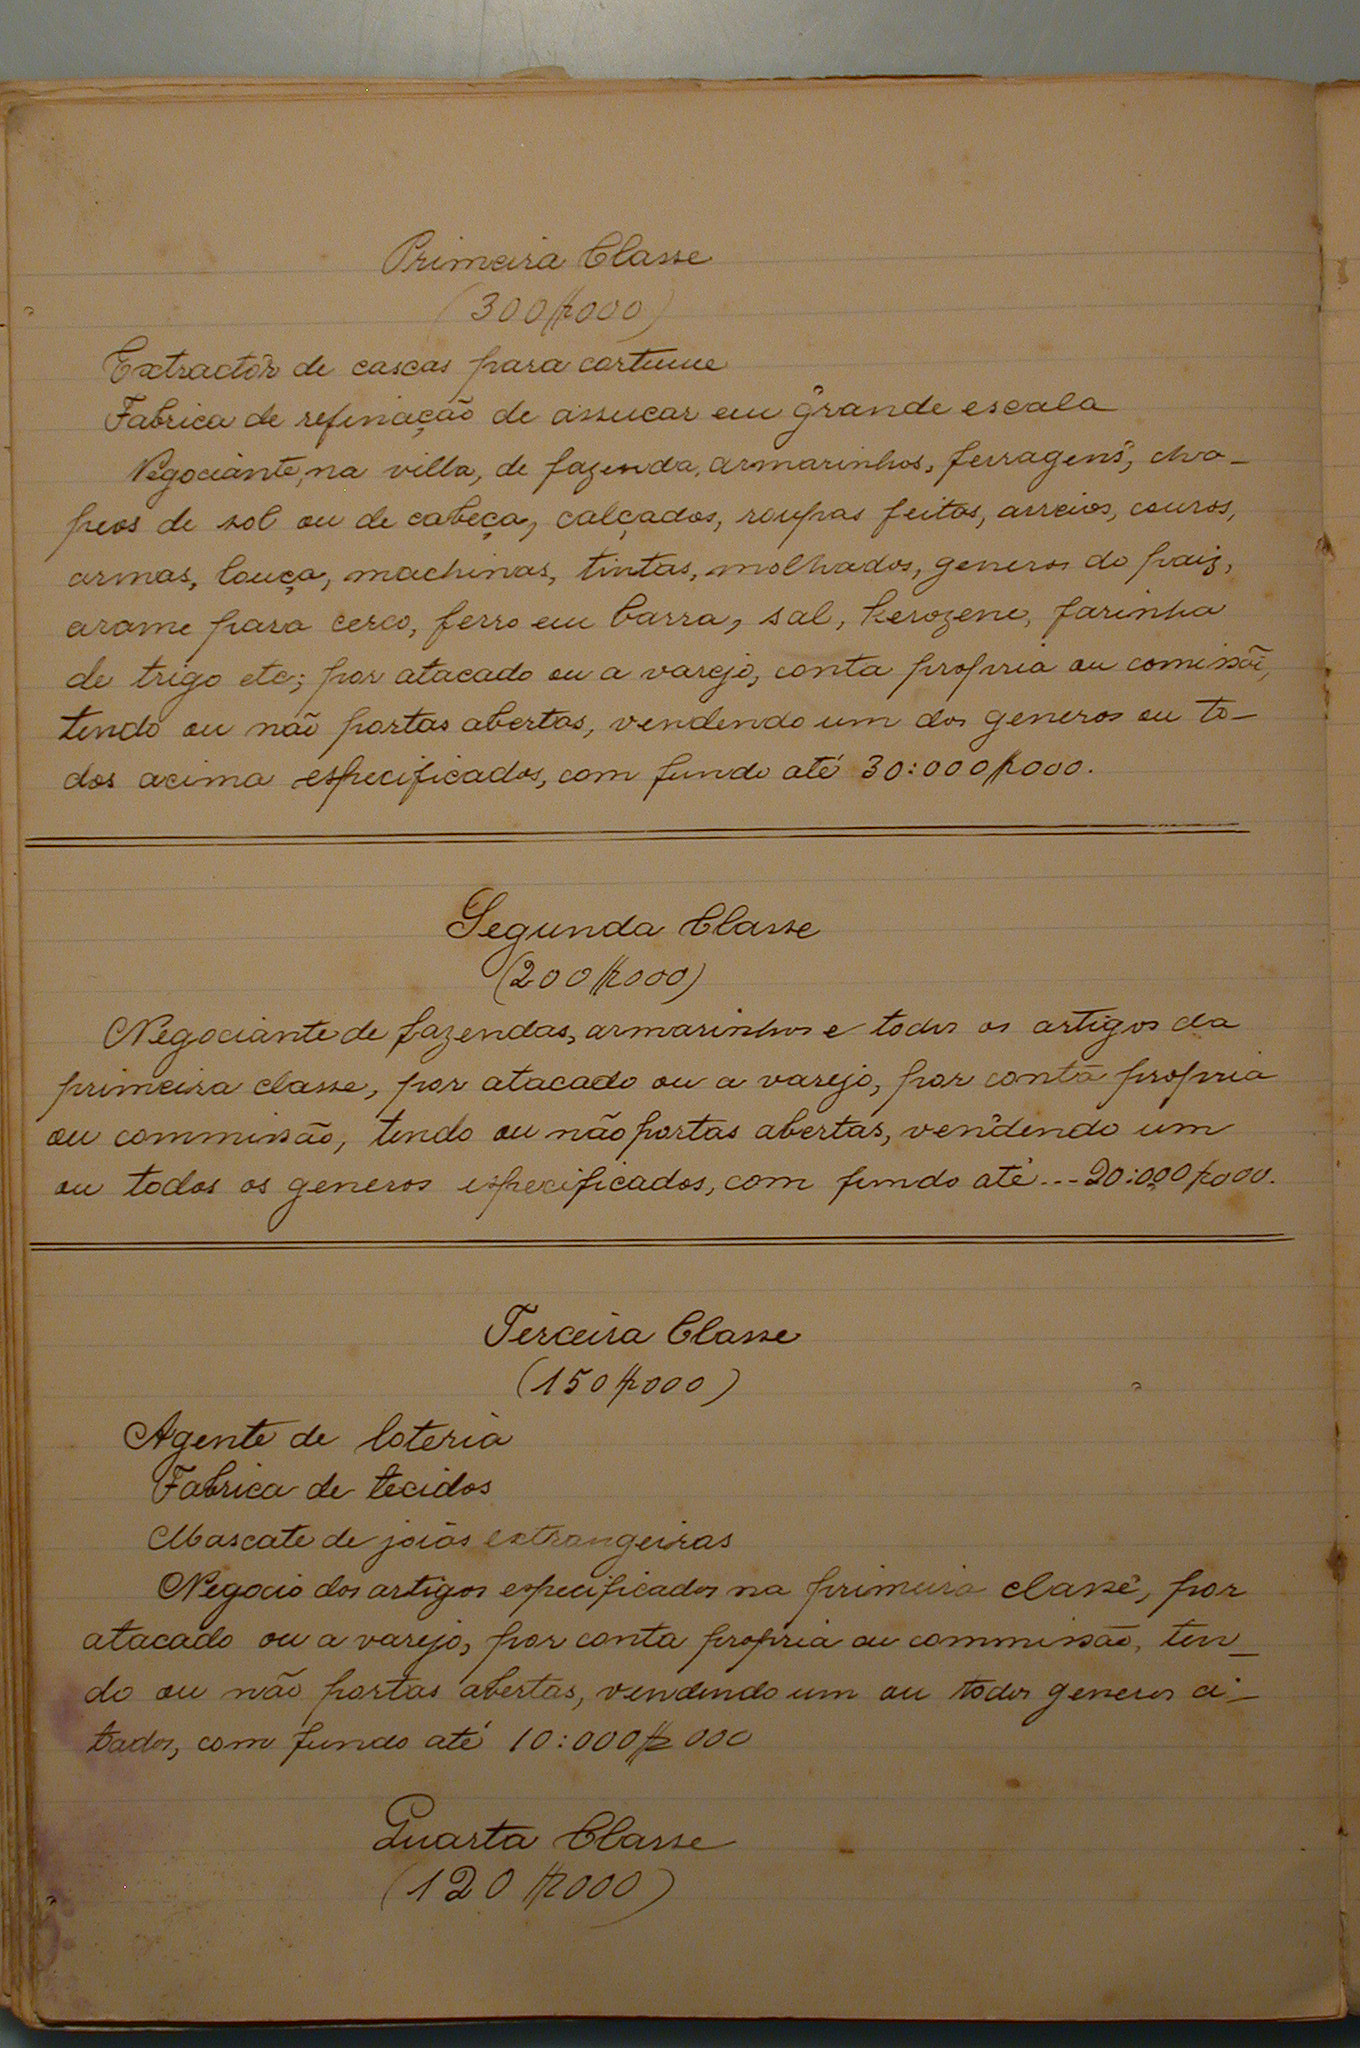 Primeira Classe
(300$000)
Extractôr de cascas para cortume
Fabrica de refinação de assucar em grande escala
Negociante, na villa, de fazenda, armarinhos, ferragens, cha-
peos de sol ou de cabeça, calçados, roupas feitas, arreios, couros,
armas, louça, machinas, tintas, molhados, generos do paiz,
arame para cerco, ferro em barra, sal, kerozene, farinha
de trigo etc; por atacado ou a varejo, conta propria ou comissão,
tendo ou não portas abertas, vendendo um dos generos ou to-
dos acima especificados, com fundo até 30:000$000.
Segunda Classe
(200$000)
Negociante de fazendas, armarinhos e todos os artigos da
primeira classe, por atacado ou a varejo, por conta propria
ou commissão, tendo ou não portas abertas, vendendo um
ou todos os generos especificados, com fundo até --- 20:000$000.
Terceira Classe
(150$000)
Agente de loteria
Fabrica de tecidos
Mascate de joias extrangeiras
Negocio dos artigos especificados na primeira classe, por
atacado ou a varejo, por conta propria ou commissão, ten-
do ou não portas abertas, vendendo um ou todos generos ci-
tados, com fundo até 10:000$000
Quarta Classe
(120$000)